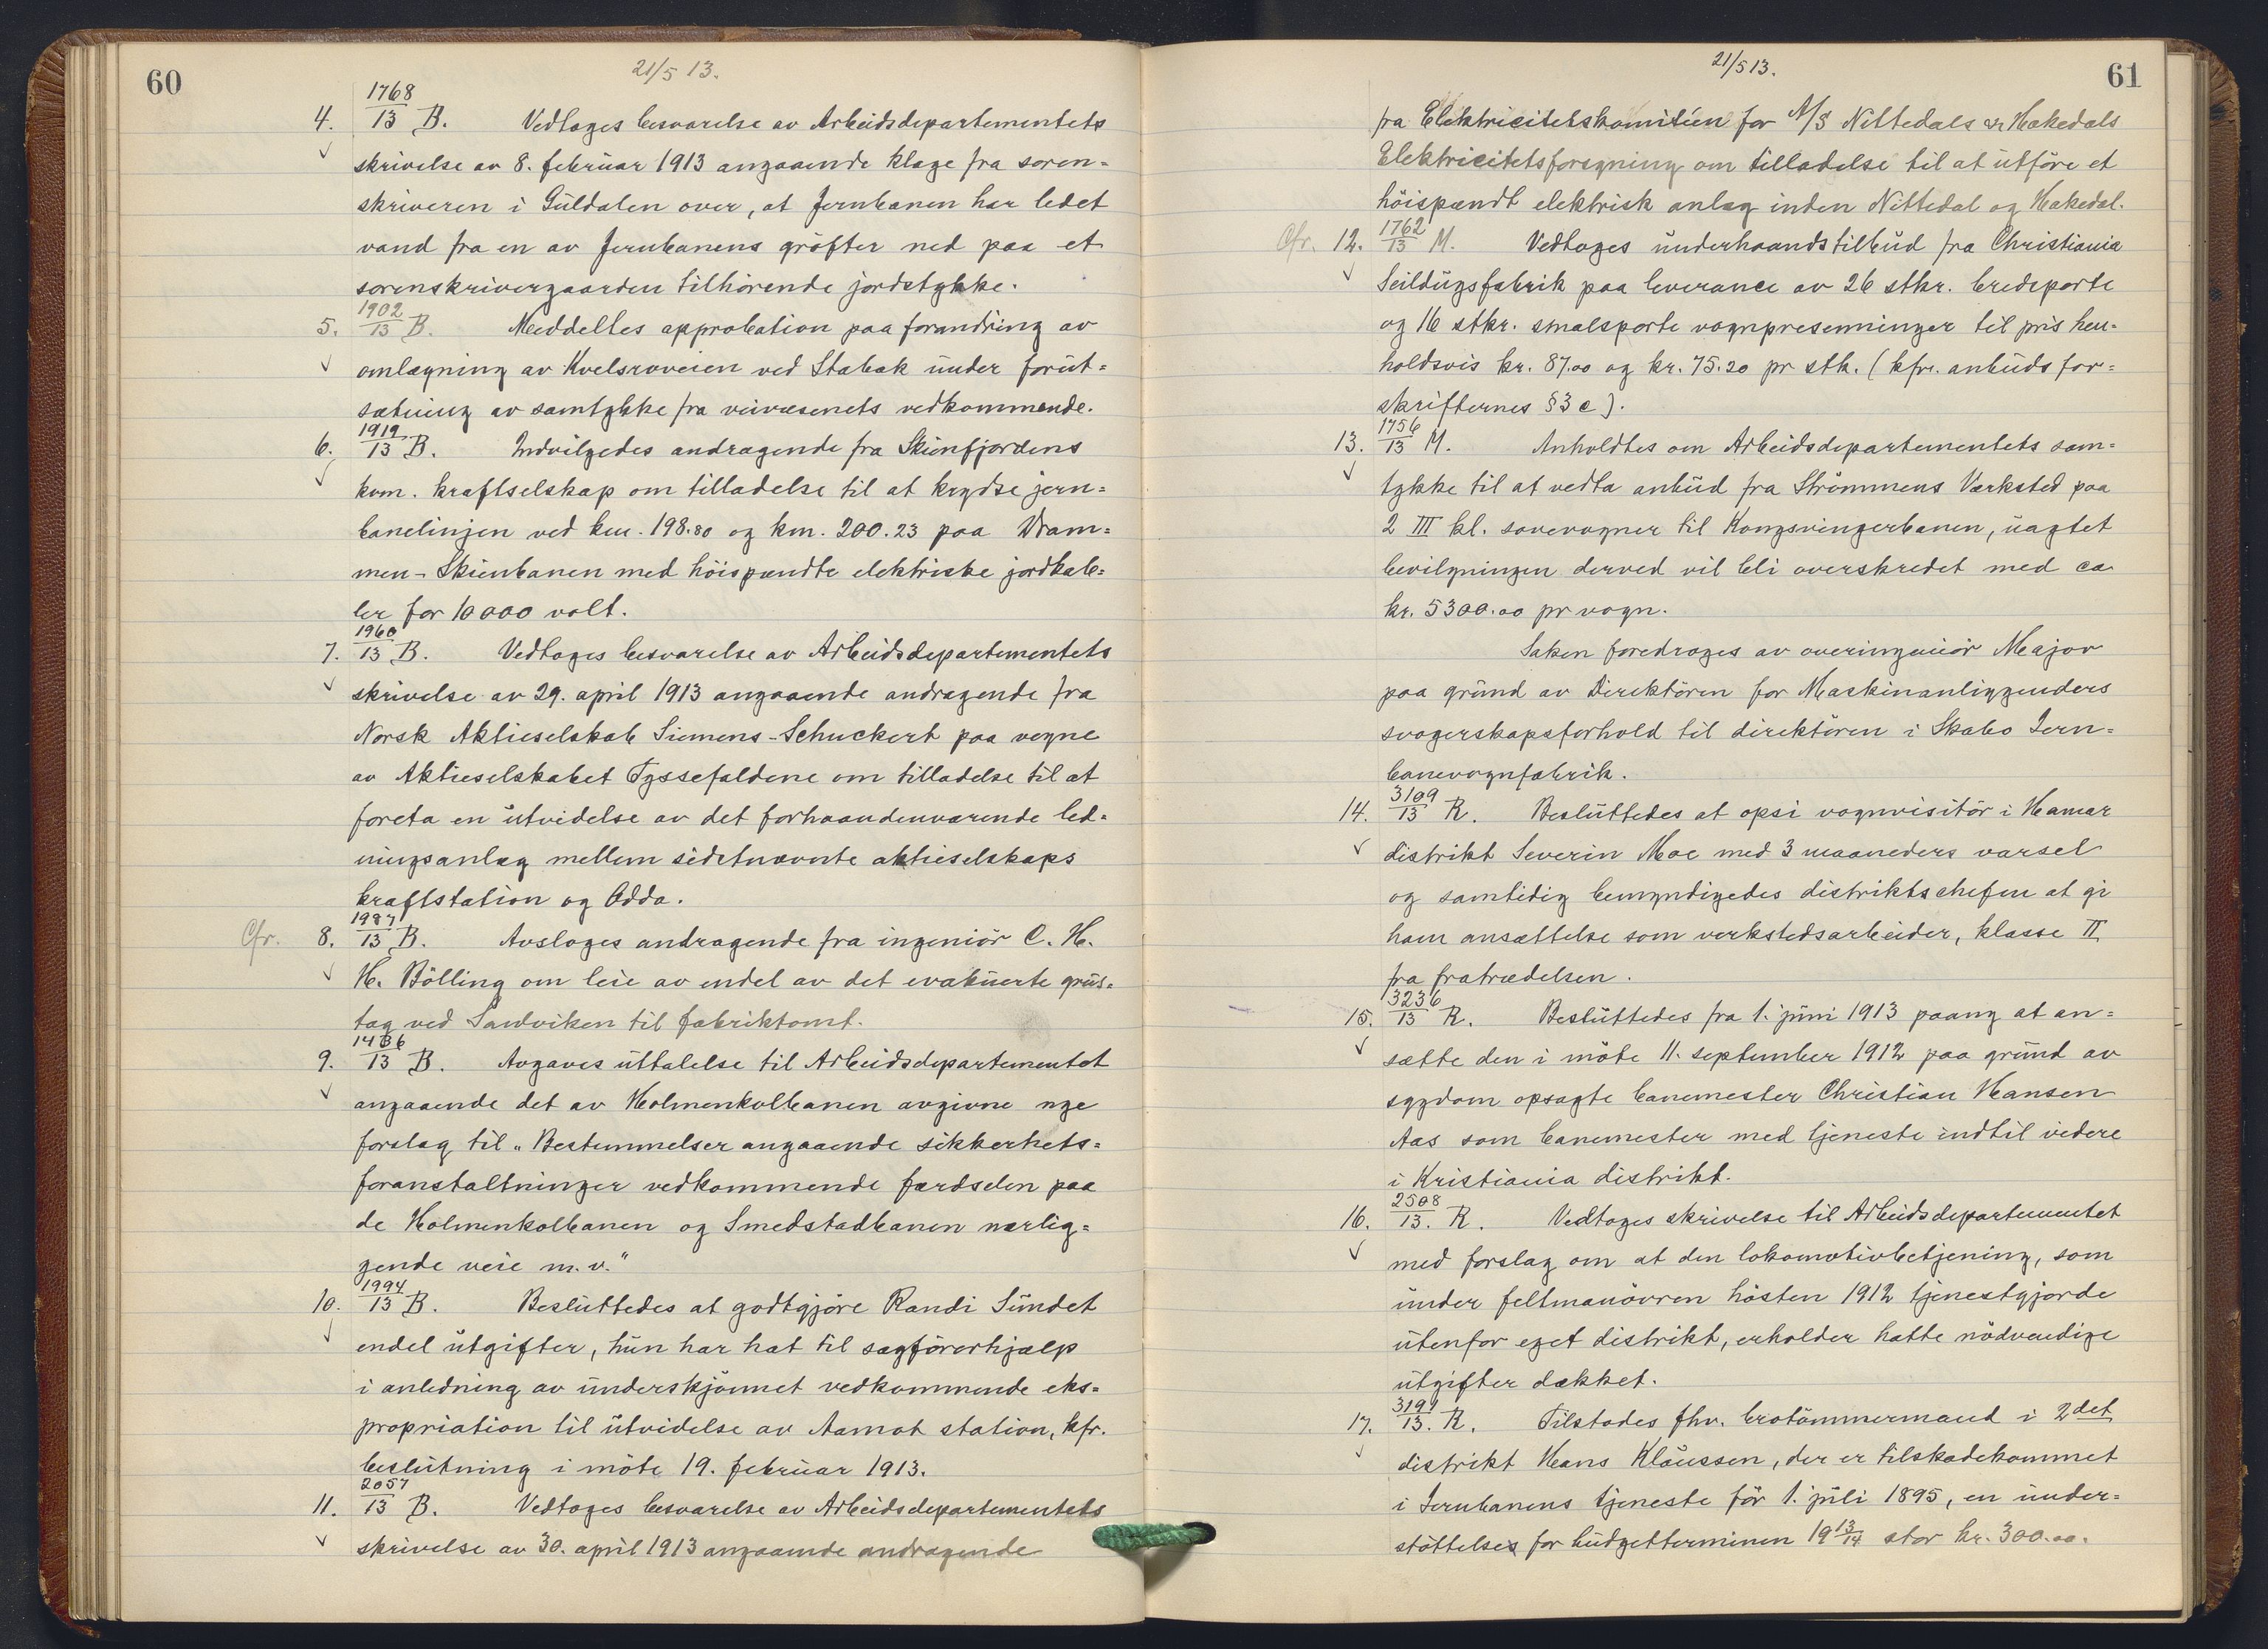 60
21/5 13.
4. 1768/13 B. Vedtoges besvarelse av Arbeidsdepartementets
skrivelse av 8. februar 1913 angaaende klage fra soren=
skriveren i Guldalen over, at Jernbanen har ledet
vand fra en av Jernbanens grøfter ned paa et
sorenskrivergaarden tilhørende jordstykke.
5. 1902/13 B. Meddeltes approbation paa forandring av
omlægning av Kvelsroveien ved Stabæk under forut=
sætning av samtykke fra veivæsenets vedkommende.
6. 1919/13 B. Indvilgedes andragende fra Skiensfjordens
kom. kraftselskap om tilladelse til at krydse jern=
banelinjen ved km. 198.80 og km. 200.23 paa Dram=
men-Skienbanen med høispændte elektriske jordkab=
ler for 10000 volt.
7. 1960/13 B. Vedtoges besvarelse av Arbeidsdepartementets
skrivelse av 29. april 1913 angaaende andragende fra
Norsk Aktieselskab Siemens-Schuckert paa vegne
av Aktieselskabet Tyssefaldene om tilladelse til at
foreta en utvidelse av det forhaandenværende led=
ningsanlæg mellem sidstnævnte aktieselskaps
kraftstation og Odda.
Cfr. 8. 1987/13 B. Avsloges andragende fra ingeniør C. H.
H. Bölling om leie av endel av det evakuerte grus=
tag ved Sandviken til fabriktomt.
9. 1486/13 B. Avgaves uttalelse til Arbeidsdepartementet
angaaende det av Holmenkolbanen avgivne nye
forslag til „Bestemmelser angaaende sikkerhets=
foranstaltninger vedkommende færdselen paa
de Holmenkolbanen og Smedstadbanen nærlig=
gende veie m. v."
10. 1994/13 B. Besluttedes at godtgjøre Randi Sundet
endel utgifter, hun har hat til sagførerhjælp
i anledning av underskjønnet vedkommende eks=
propriation til utvidelse av Aamot station, kfr.
beslutning i møte 19. februar 1913.
11. 2057/13 B. Vedtoges besvarelse av Arbeidsdepartementets
skrivelse av 30. april 1913 angaaende andragende
21/5 13.
61
fra Elektricitetskomiteen for A/S Nittedals & Hakedals
Elektricitetsforsyning om tilladelse til at utføre et
høispændt elektrisk anlæg inden Nittedal og Hakedal.
Cfr. 12. 1762/13 M. Vedtoges underhaandstilbud fra Christiania
Seildugsfabrik paa leverance av 26 stkr. bredsporte
og 16 stkr. smalsporte vognpresenninger til pris hen=
holdsvis kr. 87.00 og kr. 75.20 pr stk. (kfr. anbuds for=
skrifternes § 3 c).
13. 1756/13 M. Anholdtes om Arbeidsdepartementets sam=
tykke til at vedta anbud fra Strømmens Værksted paa
2 III kl. sovevogner til Kongsvingerbanen, uagtet
bevilgningen derved vil bli overskredet med ca
kr. 5300.00 pr vogn.
Saken foredroges av overingeniør Major
paa grund av Direktøren for Maskinanliggenders
svogerskapsforhold til direktøren i Skabo Jern=
banevognfabrik.
14. 3109/13 R. Besluttedes at opsi vognvisitør i Hamar
distrikt Severin Moe med 3 maaneders varsel
og samtidig bemyndigedes distriktschefen at gi
ham ansættelse som verkstedsarbeider, klasse II
fra fratrædelsen.
15. 3236/13 R. Besluttedes fra 1. juni 1913 paany at an=
sætte den i møte 11. september 1912 paa grund av
sygdom opsagte banemester Christian Hansen
Aas som banemester med tjeneste indtil videre
i Kristiania distrikt.
16. 2508/13. R. Vedtoges skrivelse til Arbeidsdepartementet
med forslag om at den lokomotivbetjening, som
under feltmanøvren høsten 1912 tjenestgjorde
utenfor eget distrikt, erholder hatte nødvendige
utgifter dækket.
17. 3191/13. R. Tilstodes fhv. brotømmermand i 2det
distrikt Hans Klaussen, der er tilskadekommet
i Jernbanens tjeneste før 1. juli 1895, en under=
støttelse for budgetterminen 19 13/14 stor kr. 300.00.